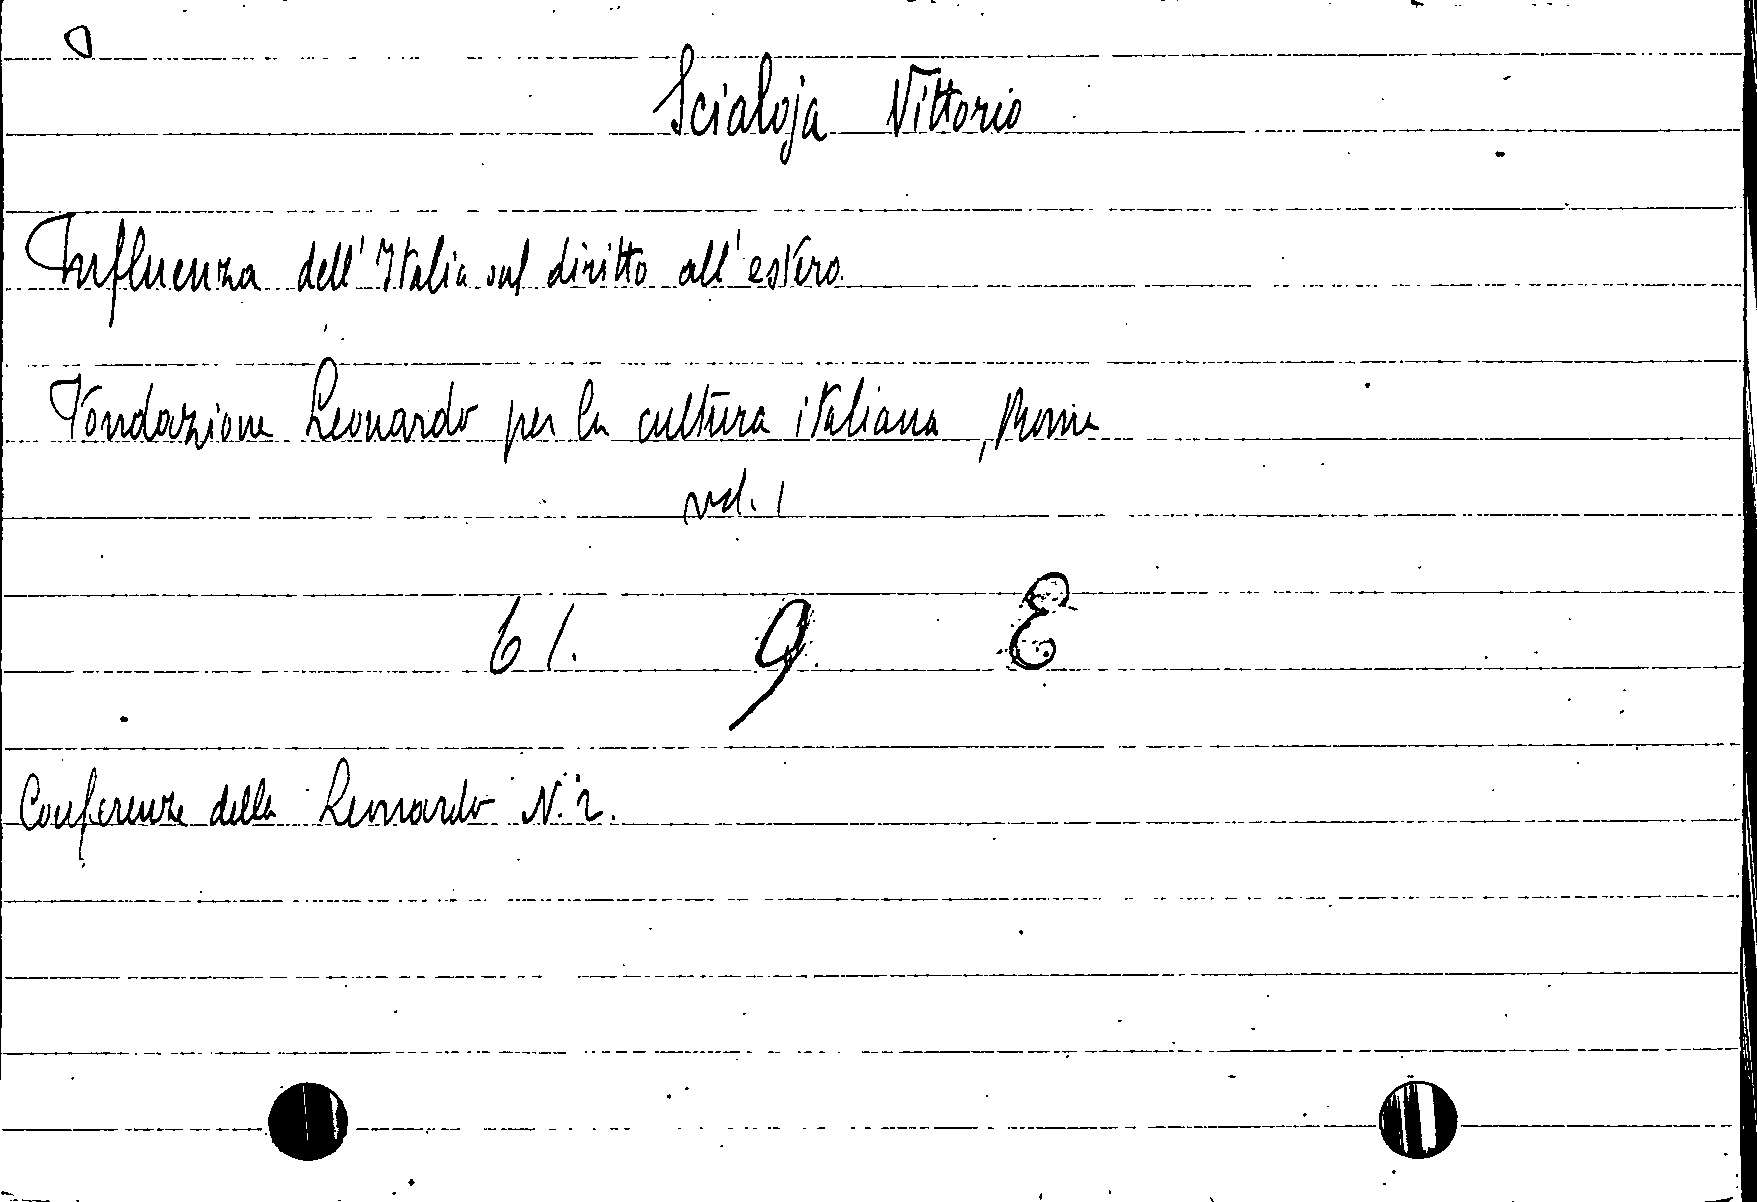 Scialoja Vittorio
Influenza dell'Italia sul diritto all'estero.
Fondazione Leonardo per la cultura italiana, Roma
vol. 1
61. 9. E
Conferenze della Leonardo N. 2.